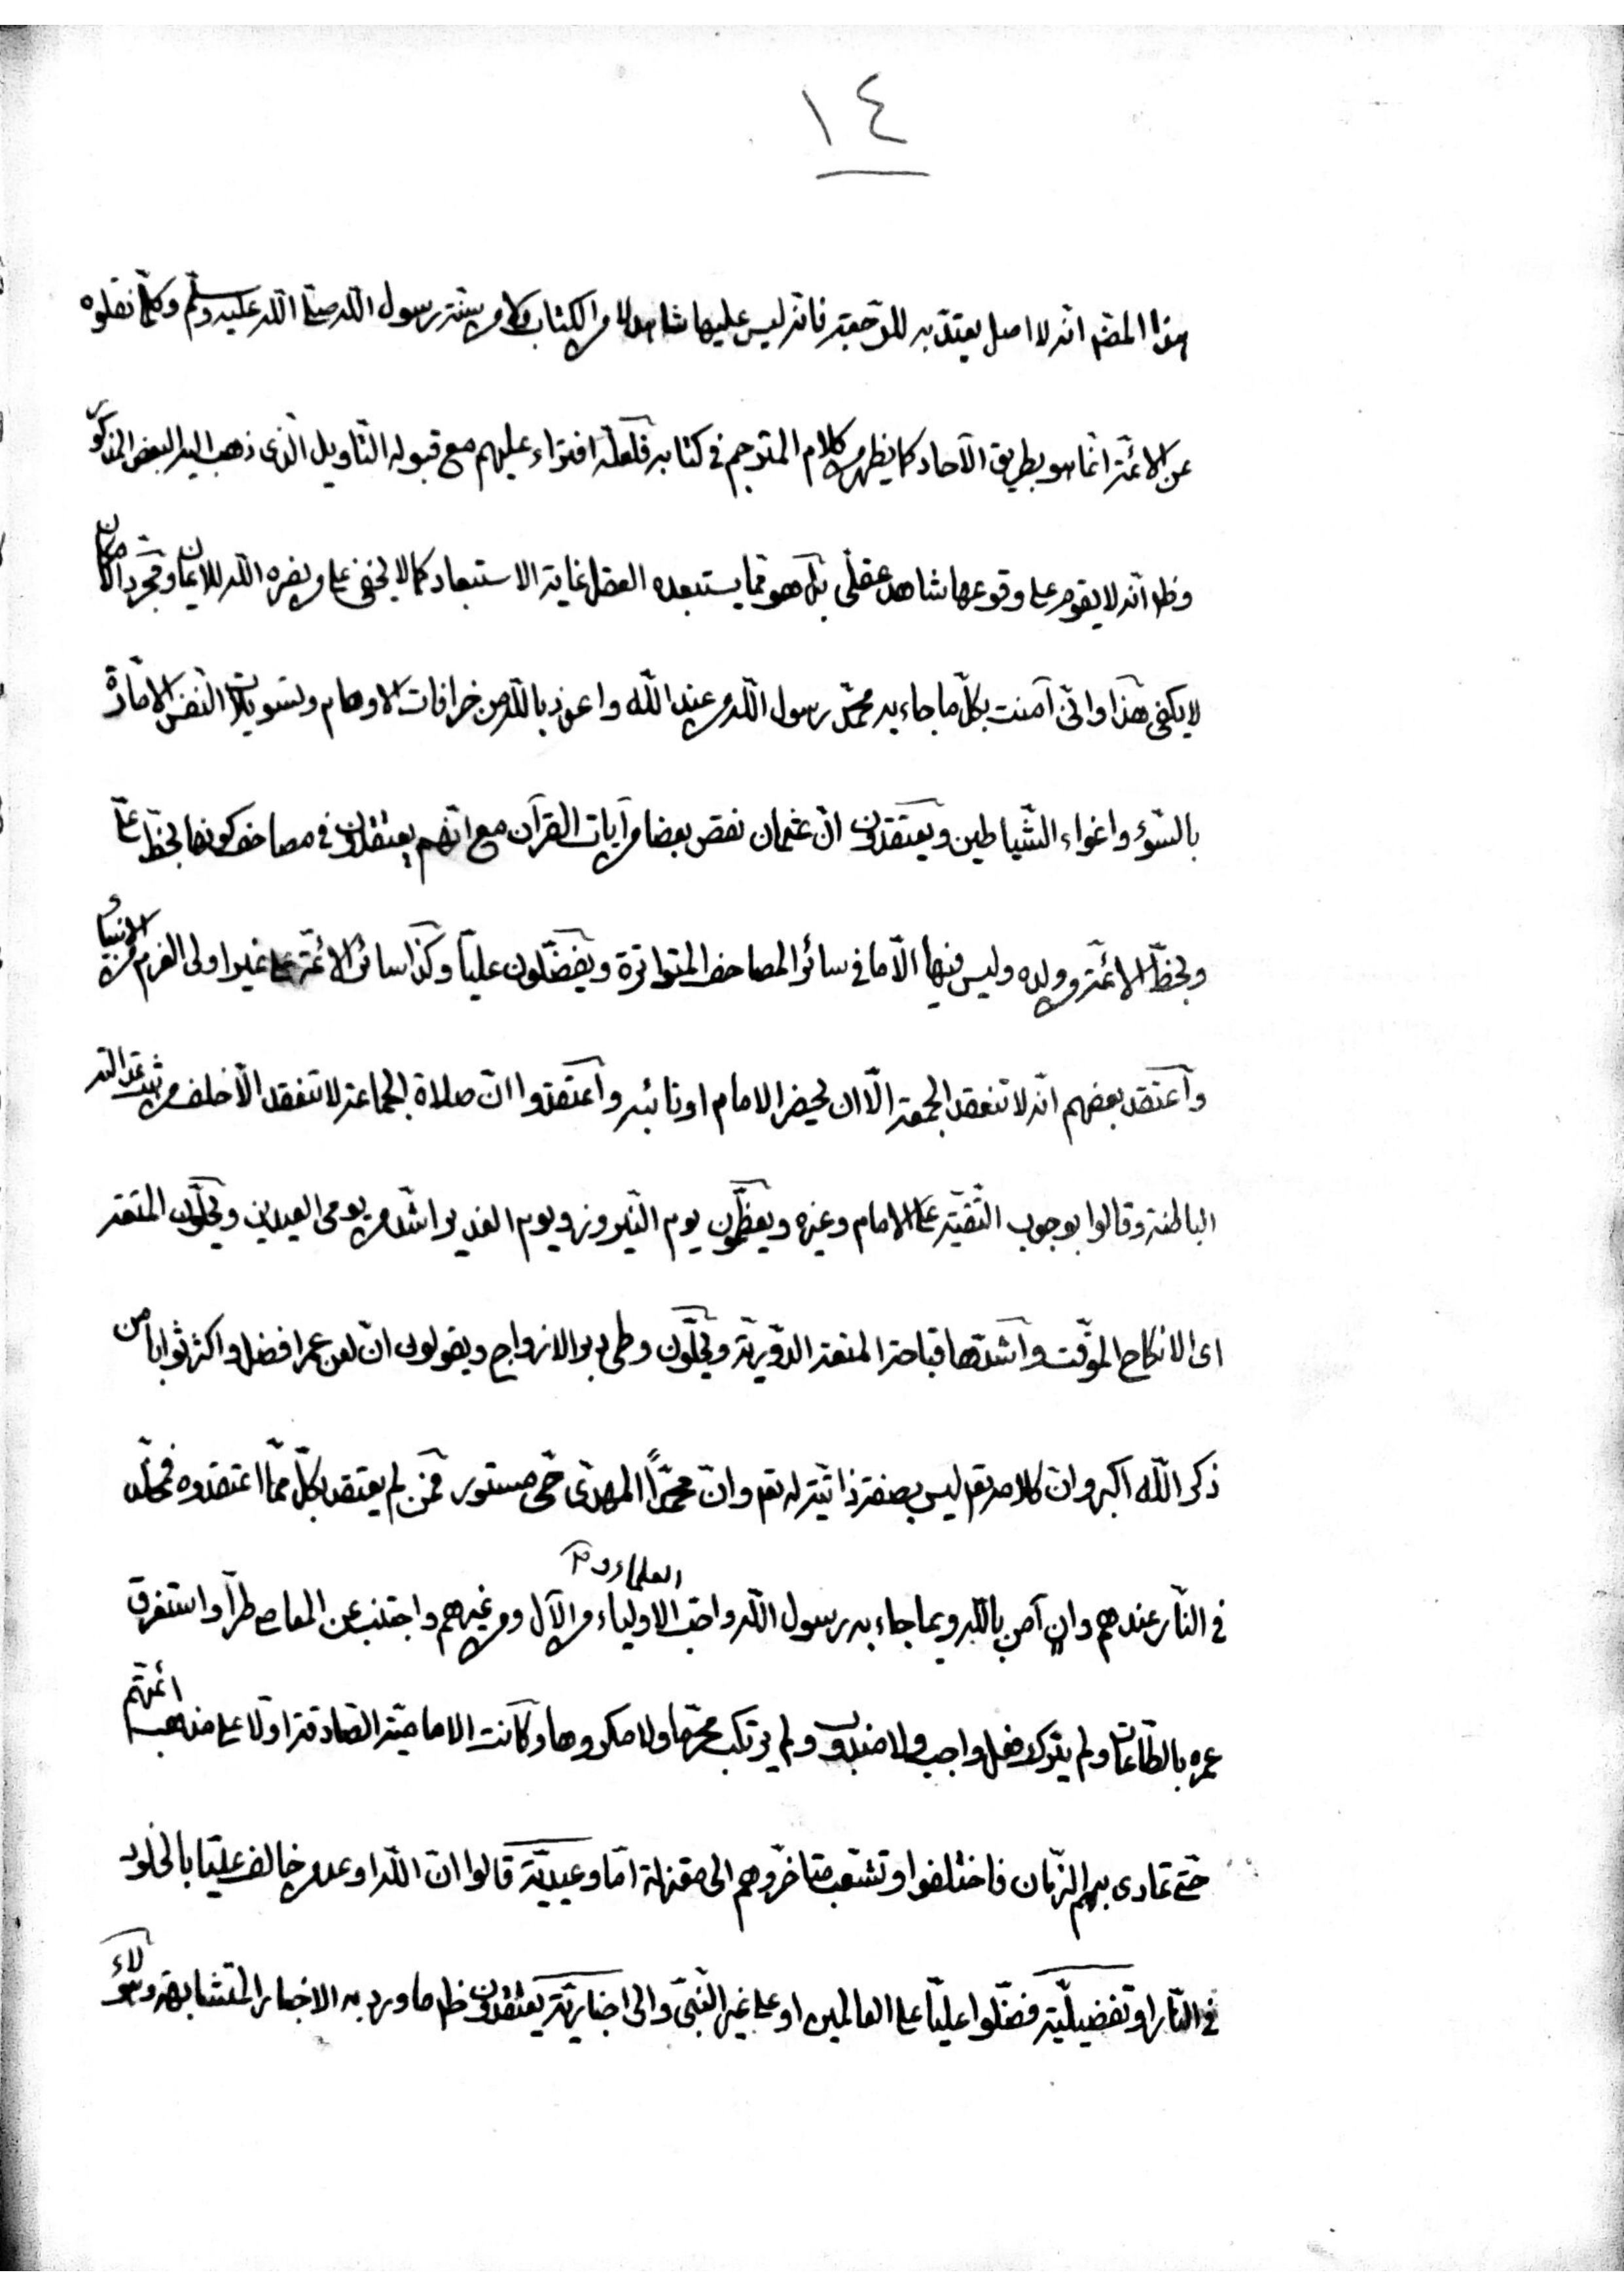 ١٤
هذا المضم انه لا اصل يعتدّ به للرّجعة فانه ليس عليها شاهد لا من الكتاب ولا من سنة رسول اللّه صلى اللّه عليه وسلّم وكلّما نقلوه
عن الائمّة انّما هو بطريق الآحاد كما يظهر من كلام المترجم فى كتابه فلعلّه افتراء عليهم مع قبوله التّاويل الّذى ذهب اليه البعض المذكور
وظ انّه لا يقوم على وقوعها شاهد عقلّى بل هو ممّا يستبعده العقل غاية الاستبعاد كما لا يخفى على من بصره اللّه للايمان ومجرّد الامكان
لا يكفى هذا وانّى آمنت بكلّ ما جاء به محمّد رسول اللّه من عند اللّه واعوذ باللّه من خرافات الاوهام وتسويلات النّفس الامّارة
بالسّوء واغواء الشّياطين ويعتقدون انّ عثمان نقص بعضا من آيات القرآن مع انّهم يعتقدون فى مصاحف كونها بخطّ علىّ
وبخطّ الائمّة من ولده وليس فيها الّا ما فى سائر المصاحف المتواترة ويفضّلون عليّا وكذا سائر الائمّة على غير اولى العزم من الانبياء
واعتقد بعضهم انّه لا تنعقد الجمعة الّا ان يحضر الامام او نائبه واعتقدوا انّ صلاة الجماعة لا تنعقد الّا خلف من ثبت عدالته
الباطنة وقالوا بوجوب التّقيّة على الامام وغيره ويعظّمون يوم النّيروز ويوم الغدير اشدّ من يومى العيدين ويحلّون المتعة
اى الانكاح الموقّت واشدّها قباحة المتعة الدّوريّة ويحلّون وطى دبر الازواج ويقولون انّ لعن عمر افضل واكثر ثوابا من
ذكر اللّه اكبر وانّ كلامه تع ليس بصفة ذاتيّة له تع وانّ محمّدًا المهدّى حّى مستور فمن لم يعتقد بكلّ ممّا اعتقدوه فمخلّد
فى النّار عندهم وان آمن باللّه وبما جاء به رسول اللّه واحبّ الاولياء والعلماء من الآل ومن غيرهم واجتنب عن المعاصى طرّا واستغرق
عمره بالطّاعات ولم يترك فعل واجب ولا مندوب ولم يرتكب محرّما ولا مكروها وكانت الاماميّة الصّادقة اوّلا على مذهب ائمّتهم
حتّى تمادى بهم الزّمان فاختلفوا وتشعّب متاخّروهم الى معتزلة امّا وعيديّة قالوا انّ اللّه اوعد من خالف عليّا بالخلود
فى النّار او تفضيليّة فضّلوا عليّا على العالمين او على غير النّبىّ والى اخباريّة يعتقدون ظ ما ورد به الاخبار المتشابهة وهؤلاء